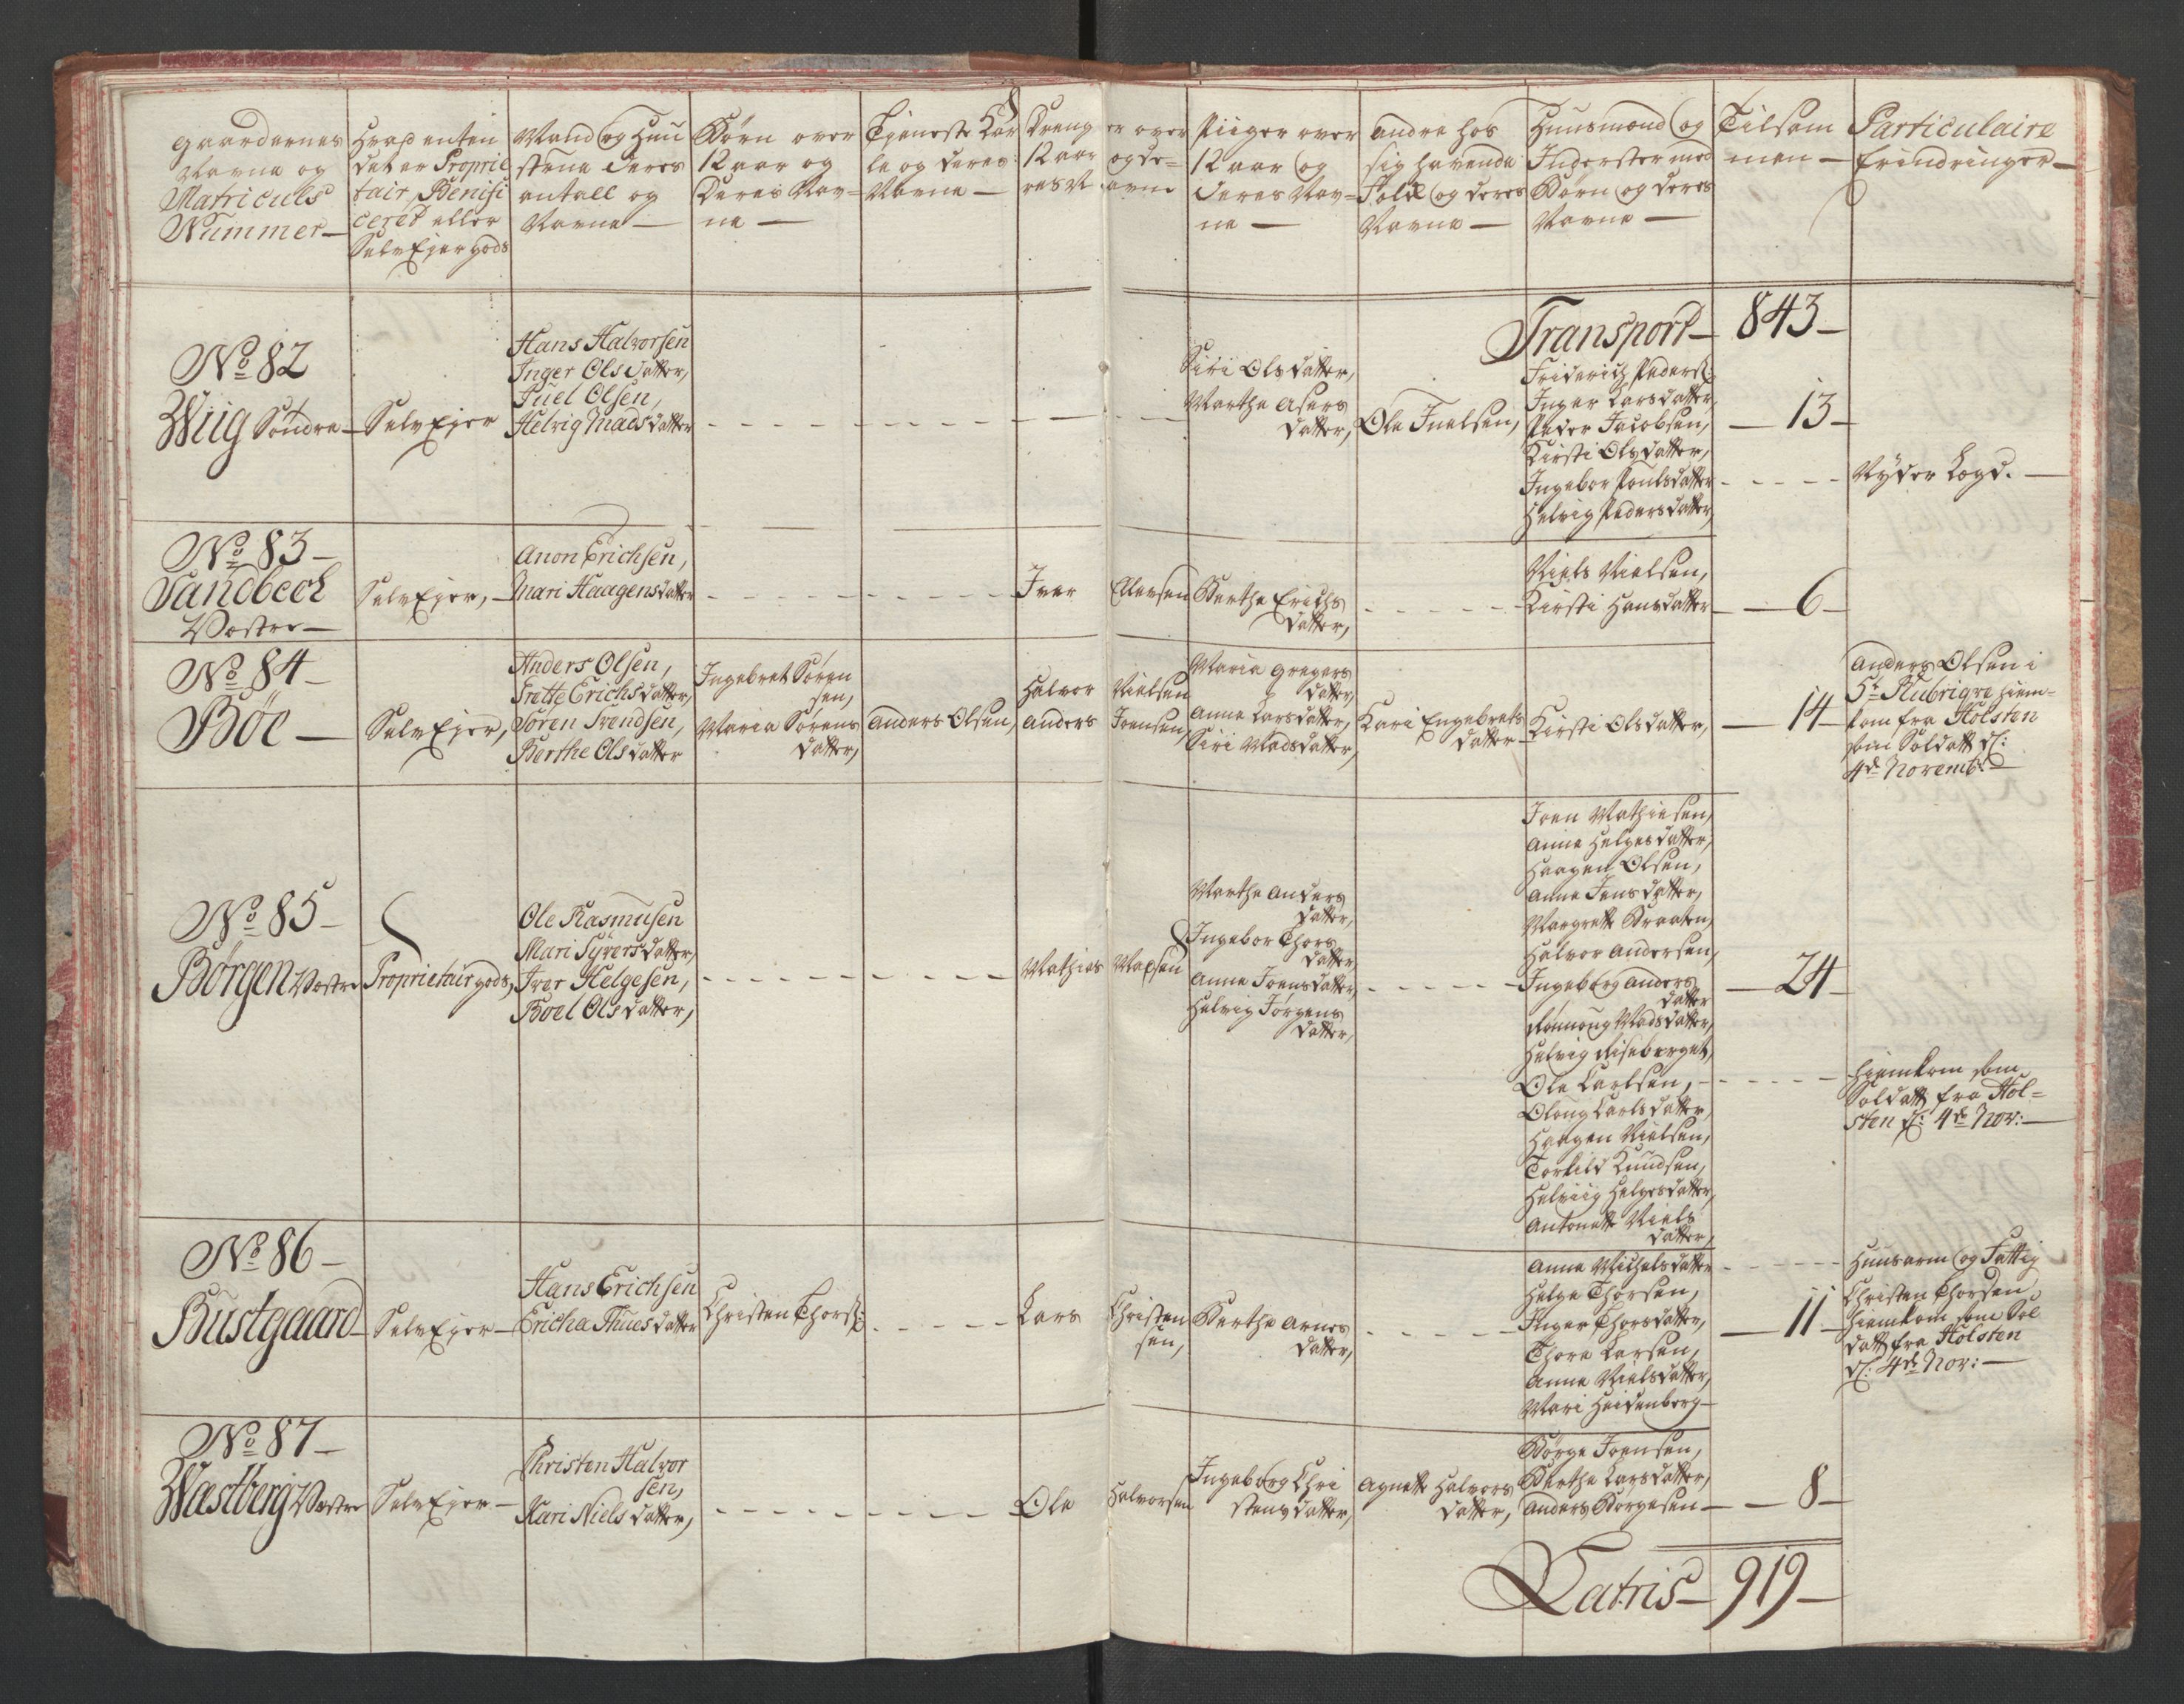 gaardernes
Navne og
Matriculs
Nummer—
Hvad enten
det er Proprie
tair, Benifi
ceret eller
SelvEjer gods
Mand og Huu
strue deres
antall og
Navne—
Børn over
12 aar og
Deres Nav=
ne—
Tjeneste Kar
le og deres
Navne—
Drenger over
12 aar og de=
res Navne
Piiger over
12 aar og
deres Nav=
ne—
andre hos
sig havende
Folk og deres
Navne—
Huusmænd og
Inderster med
Børn og deres
Navne—
Tilsam
men—
Particulaire
Erindringer—
Transport— 843—
No 82
Wiig Søndre—
SelvEjer
Hans Halvorsen
Inger Olsdatter,
Juel Olsen,
Helvig Madsdatter
Siri Olsdatter,
Marthe Asers
datter,
Ole Juelsen,
Friderich Peders:
Inger Larsdatter,
Peder Jacobsen,
Kirsti Olsdatter,
Ingebor Poulsdatter
Helvig Pedersdatter,
—13—
Ryder Lægd.—
No 83—
Sandbech
Vestre—
SelvEjer,—
Anon Erichsen,
Mari Haagensdatter
Iver Ellevsen
Berthe Erichs
datter,
Niels Nielsen,
Kirsti Hansdatter
—6—
No 84—
Böe—
SelvEjer,
Anders Olsen,
Grette Erichsdatter,
Søren Svendsen,
Berthe Olsdatter
Ingebret Søren
sen,
Maria Sørens
datter,
Anders Olsen,
Halvor Nielsen
Anders Joensen,
Maria Gregers
datter,
Anne Larsdatter,
Siri Madsdatter,
Kari Engebrets
datter
Kirsti Olsdatter,
—14—
Anders Olsen i
hiem=
kom fra Holsten
som Soldatt d:
4de Novemb:—
No 85—
Børgen Vestre
Proprietair gods,
Ole Rasmusen
Mari Syversdatter,
Iver Helgesen,
Boel Olsdatter,
Mathias
Marthe Anders
datter,
Ingebor Thors
datter
Anne Joensdatter,
Helvig Jørgens
datter,
Joen Mathiesen,
Anne Helgesdatter,
Haagen Olsen,
Anne Jensdatter,
Margrette Braaten,
Halvor Andersen,
Ingeborg Anders
datter
Rønnoug Madsdatter,
Helvig Riseberget,
Ole Carlsen,
Oloug Carlsdatter,
Haagen Nielsen,
Torkild Knudsen,
Helviig Helgesdatter,
Antonette Niels
datter,
—24—
hjemkom som
Soldatt fra Hol=
sten d: 4de Nov:—
No 86—
Bustgaard—
SelvEjer—
Hans Erichsen
Ericha Thuesdatter
Christen Thors:
Lars Christen
sen,
Berthe Arnes
datter,
Anne Michelsdatter
Helge Thorsen,
Inger Thorsdatter,
Thore Larsen,
Anne Nielsdatter,
Mari Heidenberg—
—11—
Huusarm og Fattig
Christen Thorsen
hiemkom som Sol
datt fra Holsten
d: 4de Nov:—
No 87—
Wæstberg Vestre
SelvEjer—
Christen Halvor
sen,
Kari Nielsdatter,
Ole Halvorsen
Ingeborg Chri
stensdatter,
Agnette Halvors
datter,
Børge Joensen,
Berthe Larsdatter,
Anders Børgesen—
—8—
Latris— 919—